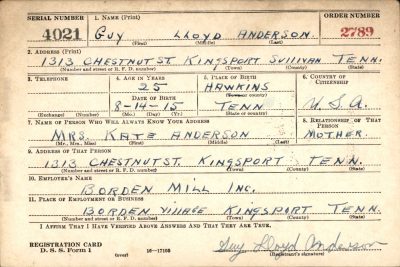 SERIAL NUMBER 1. NAME (Print) ORDER NUMBER
4021 GUY LLOYD ANDERSON. 2789
(First) (Middle) (Last)
2. ADDRESS (Print)
1313 CHESTNUT ST. KINGSPORT SULLIVAN TENN.
(Number and street or R. F. D. number) (Town) (County) (State)
3. TELEPHONE 4. AGE IN YEARS 5. PLACE OF BIRTH 6. COUNTRY OF CITIZENSHIP
25 HAWKINS
DATE OF BIRTH (Town or county)
8-14-15 TENN U.S.A.
(Exchange) (Number) (Mo.) (Day) (Yr.) (State or country)
7. NAME OF PERSON WHO WILL ALWAYS KNOW YOUR ADDRESS 8. RELATIONSHIP OF THAT PERSON
MRS. KATE ANDERSON MOTHER.
(Mr., Mrs., Miss) (First) (Middle) (Last)
9. ADDRESS OF THAT PERSON
1313 CHESTNUT ST. KINGSPORT TENN.
(Number and street or R. F. D. number) (Town) (County) (State)
10. EMPLOYER'S NAME
BORDEN MILL INC.
11. PLACE OF EMPLOYMENT OR BUSINESS
BORDEN VILLAGE KINGSPORT TENN.
(Number and street or R. F. D. number) (Town) (County) (State)
I AFFIRM THAT I HAVE VERIFIED ABOVE ANSWERS AND THAT THEY ARE TRUE.
REGISTRATION CARD
D. S. S. Form 1 (over) 16-17105 Guy Lloyd Anderson
(Registrant's signature)